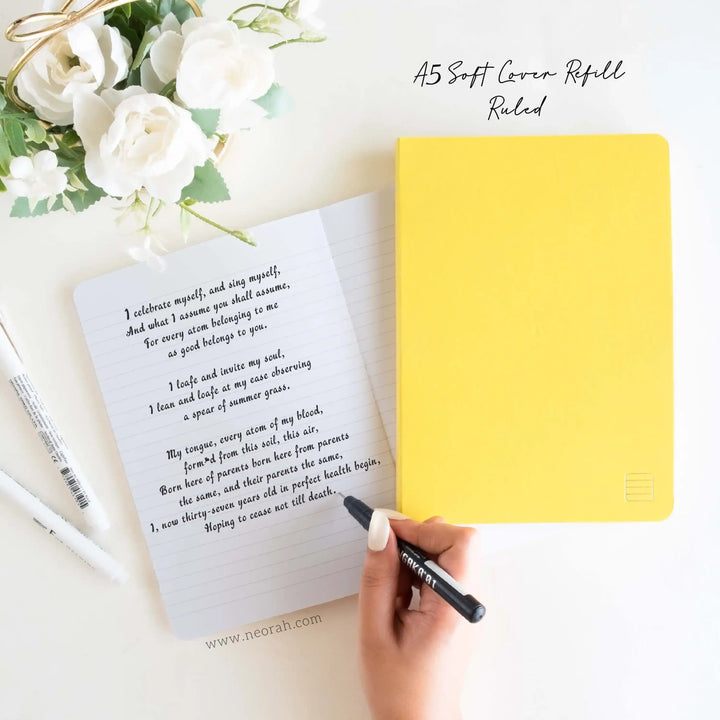 A5 Soft Cover Refill
Ruled
I celebrate myself, and sing myself,
And what I assume you shall assume,
For every atom belonging to me
as good belongs to you.
I loafe and invite my soul,
I lean and loafe at my ease observing
a spear of summer grass.
My tongue, every atom of my blood,
form*d from this soil, this air,
Born here of parents born here from parents
the same, and their parents the same,
I, now thirty-seven years old in perfect health begin,
Hoping to cease not till death.
www.neorah.com